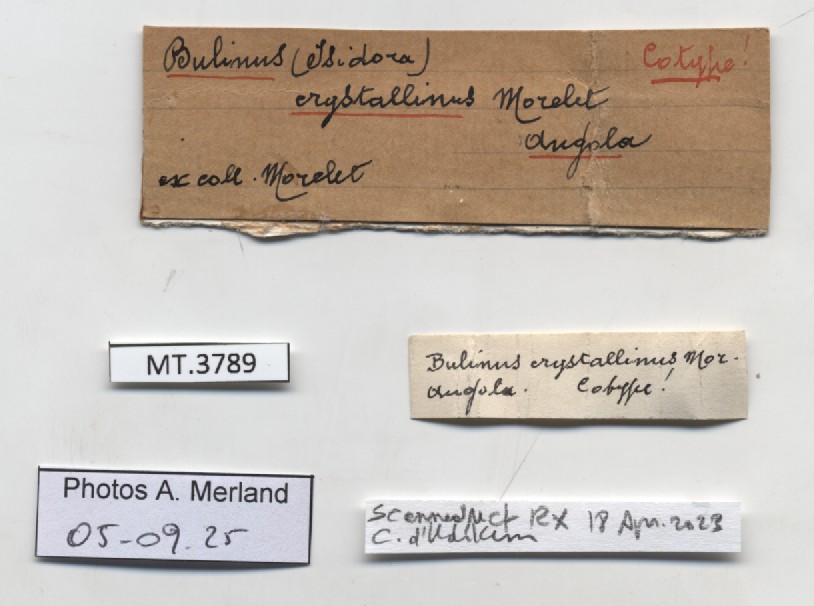 Bulinus (Isidora) Cotype!
crystallinus Morelet
Angola
ex coll. Morelet
MT.3789
Bulinus crystallinus Mor.
Angola. Cotype!
Photos A. Merland
05-09.25
Scanned RX 18 Apr. 2023
C. d'Udekem